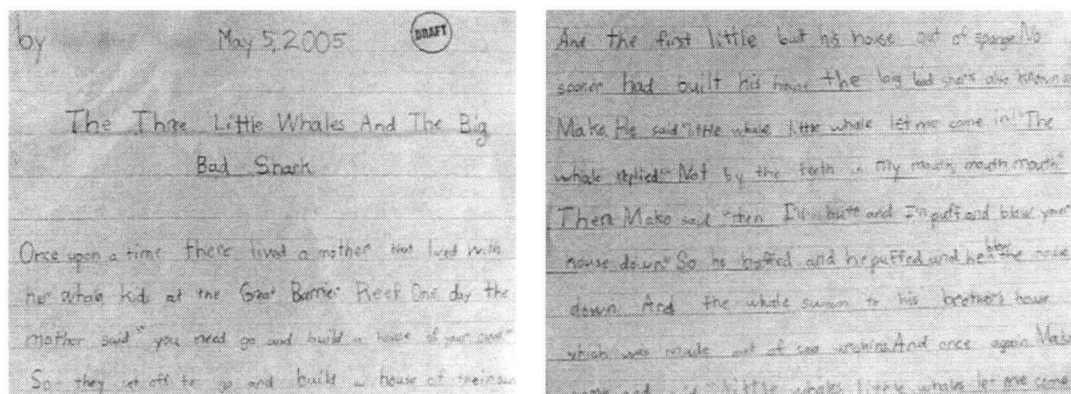 by May 5, 2005 DRAFT
The Three Little Whales And The Big
Bad Shark
Once upon a time there lived a mother that lived with
her whale kids at the Great Barrier Reef. One day the
mother said" you need go and build a house of your own"
So they set off to go and build a house of their own
And the first little but his house out of sponge. No
sooner had built his house the big bad shark also known
Make. He said "little whale little whale let me come in" The
whale replied" Not by the teeth in my mouth, mouth mouth"
Then Mako said "then I'll huff and I'll puff and blow your
house down" So he huffed and he puffed and he blew the house
down And the whale swam to his brothers house
which was made out of sea urchins. And once again Mako
came and said little whales little whales let me come